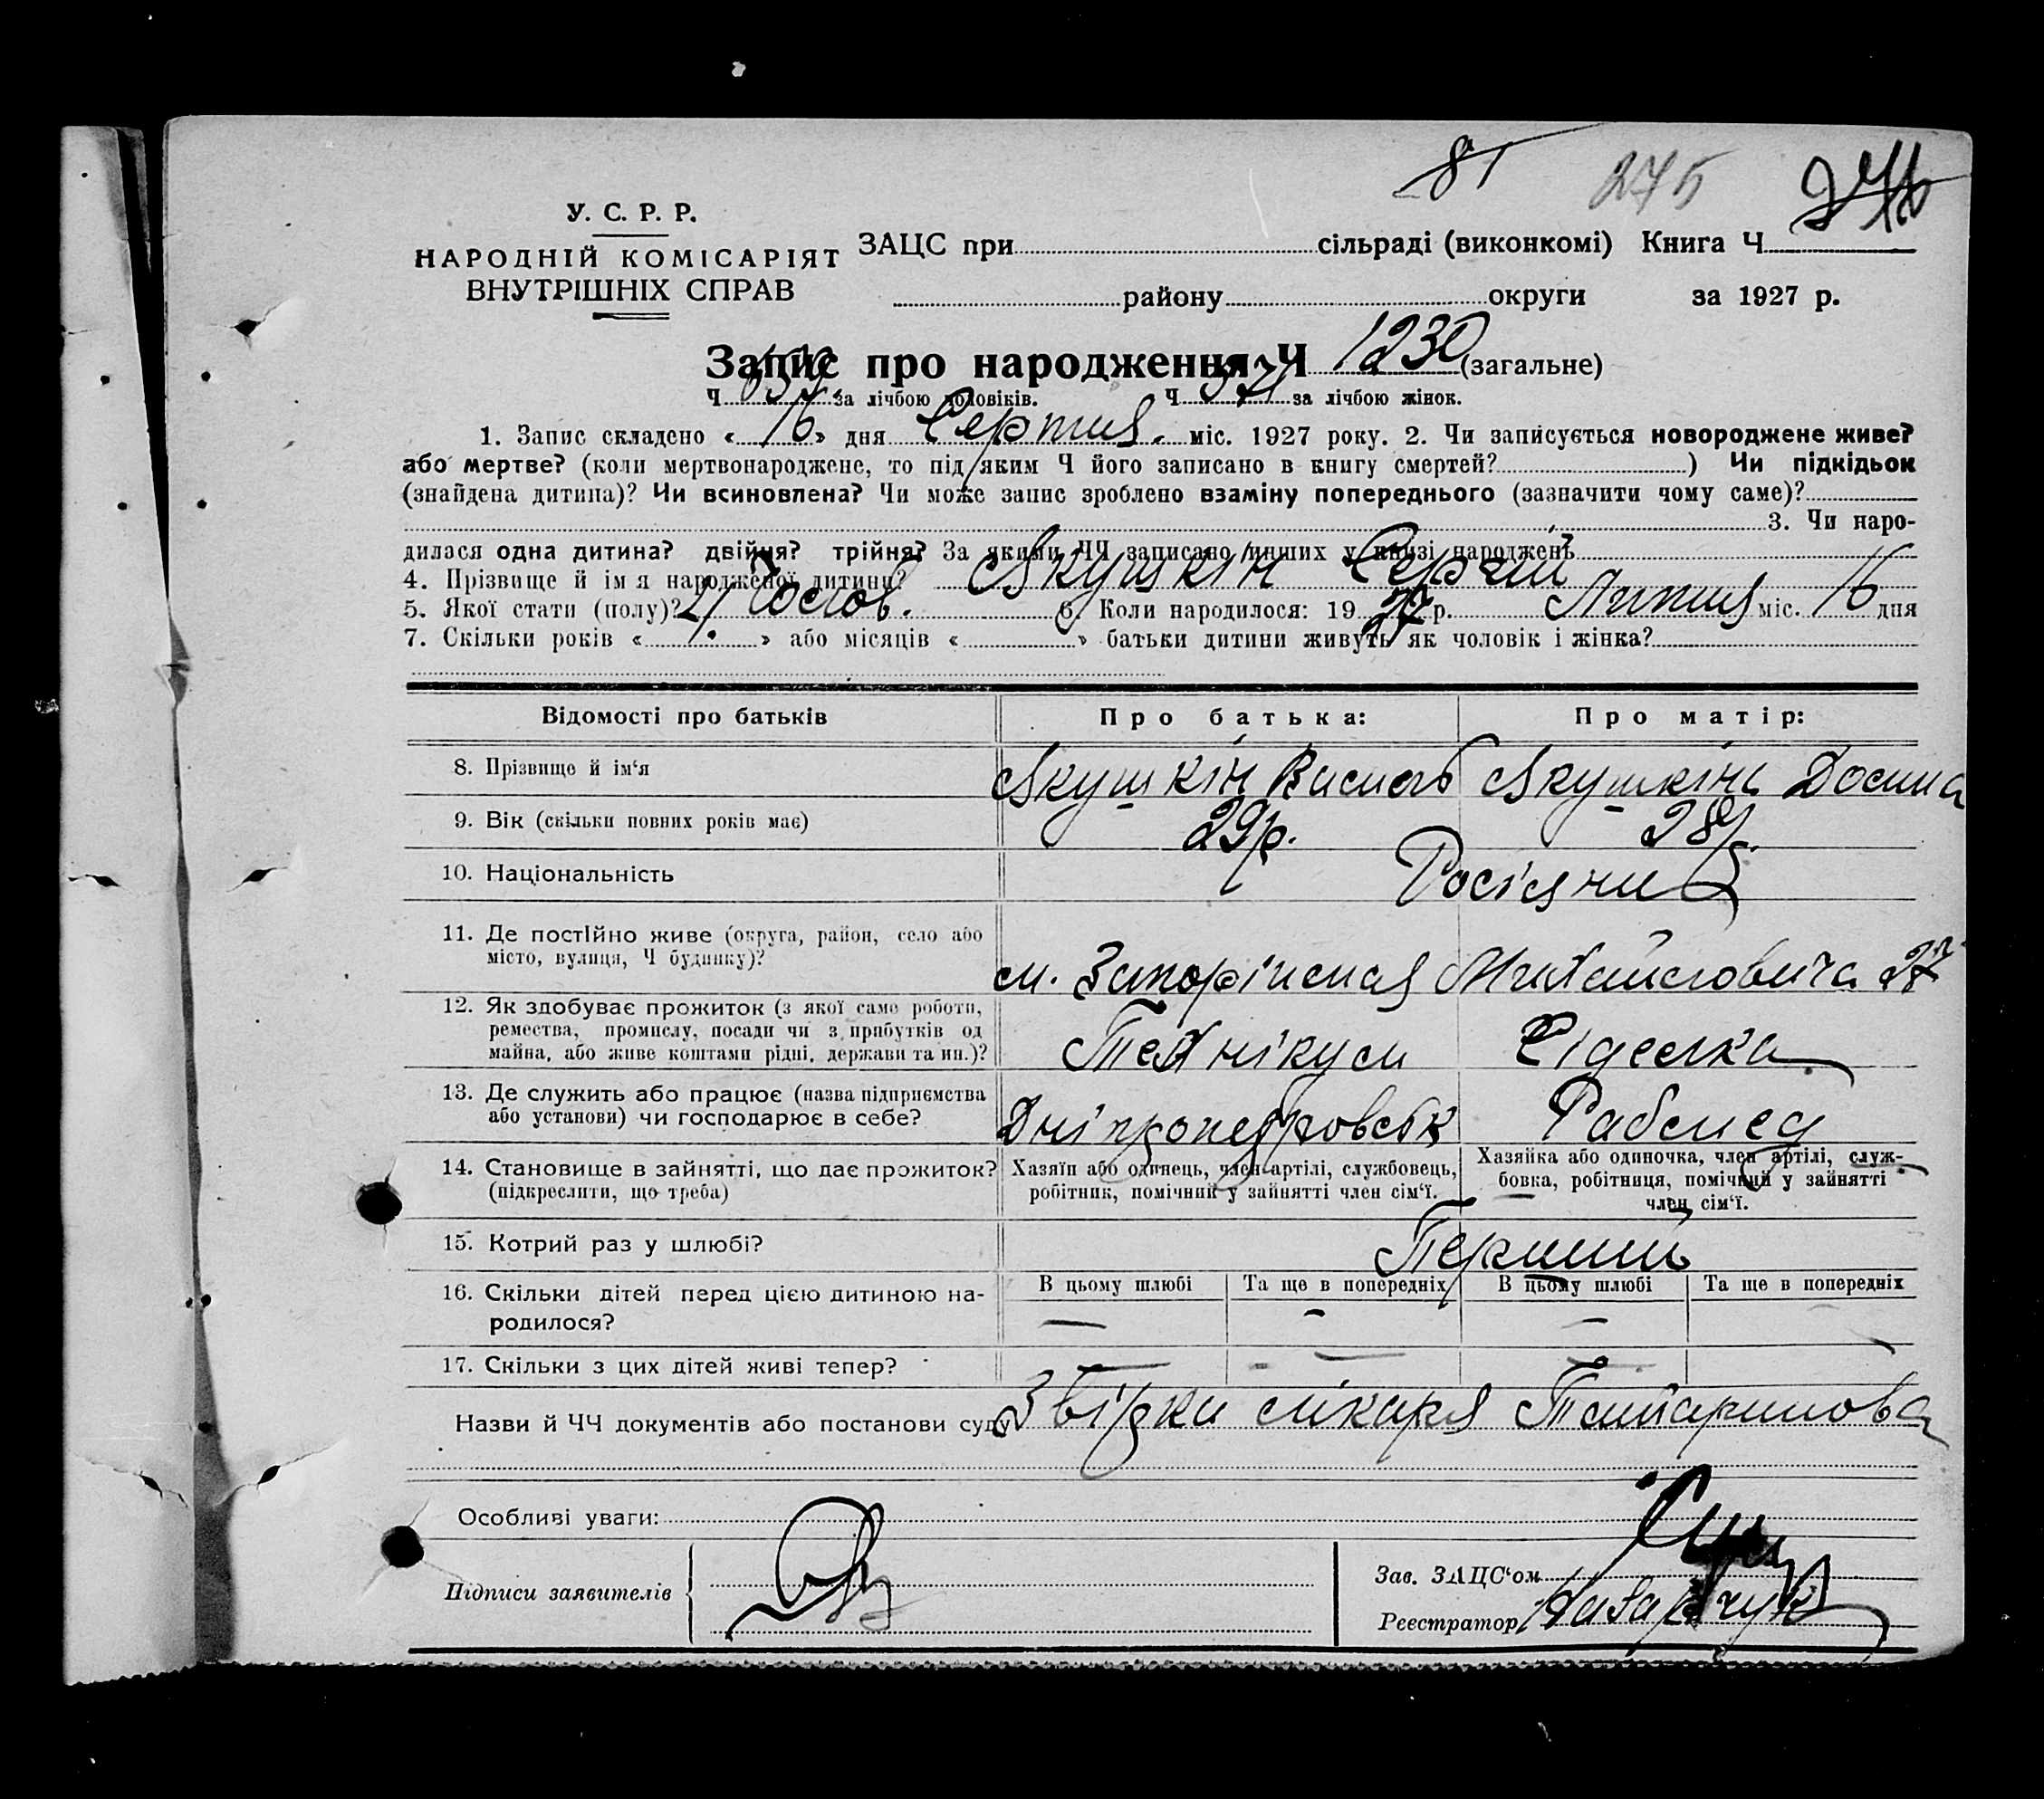 81 275
У. С. Р. Р.
НАРОДНІЙ КОМІСАРІЯТ
ВНУТРІШНІХ СПРАВ
ЗАЦС при сільраді (виконкомі) Книга Ч
району округи за 1927 р.
Запис про народження Ч 1230 (загальне)
Ч за лічбою чоловіків. Ч за лічбою жінок.
1. Запис складено « 16 » дня Серпня. міс. 1927 року. 2. Чи записується новороджене живе?
або мертве? (коли мертвонароджене, то під яким Ч його записано в книгу смертей? ) Чи підкідьок
(знайдена дитина)? Чи всиновлена? Чи може запис зроблено взаміну попереднього (зазначити чому саме)?
3. Чи наро-
дилася одна дитина? двійня? трійня? За якими ЧЧ записано инших у книзі народжень
4. Прізвище й ім я народженої дитини? Якушкін Сергій
5. Якої стати (полу)? Чолов. 6. Коли народилося: 19 27 р. Липня міс. 16 дня
7. Скільки років « 1. » або місяців « » батьки дитини живуть як чоловік і жінка?
Відомості про батьків
Про батька:
Про матір:
8. Прізвище й ім‘я Якушкін Якушкіна
9. Вік (скільки повних років має) 29 р. 28 р.
10. Національність Росіяни
11. Де постійно живе (округа, район, село або
місто, вулиця, Ч будинку)?
м. Михайловича 27
12. Як здобуває прожиток (з якої саме роботи,
ремества, промислу, посади чи з прибутків од
майна, або живе коштами рідні, держави та ин.)?
Технікум Сіделка
13. Де служить або працює (назва підприємства
або установи) чи господарює в себе?
Дніпропетровськ Рабмед
14. Становище в зайнятті, що дає прожиток?
(підкреслити, що треба)
Хазяїн або одинець, член артілі, службовець,
робітник, помічний у зайнятті член сім‘ї.
Хазяйка або одиночка, член артілі, служ-
бовка, робітниця, помічний у зайнятті
член сім‘ї.
15. Котрий раз у шлюбі? Перший
16. Скільки дітей перед цією дитиною на-
родилося?
В цьому шлюбі Та ще в попередніх В цьому шлюбі Та ще в попередніх
— — — —
17. Скільки з цих дітей живі тепер? — — —
Назви й ЧЧ документів або постанови суду Звірки лікаря
Особливі уваги:
Підписи заявителів
Зав. ЗАЦС‘ом
Реєстратор